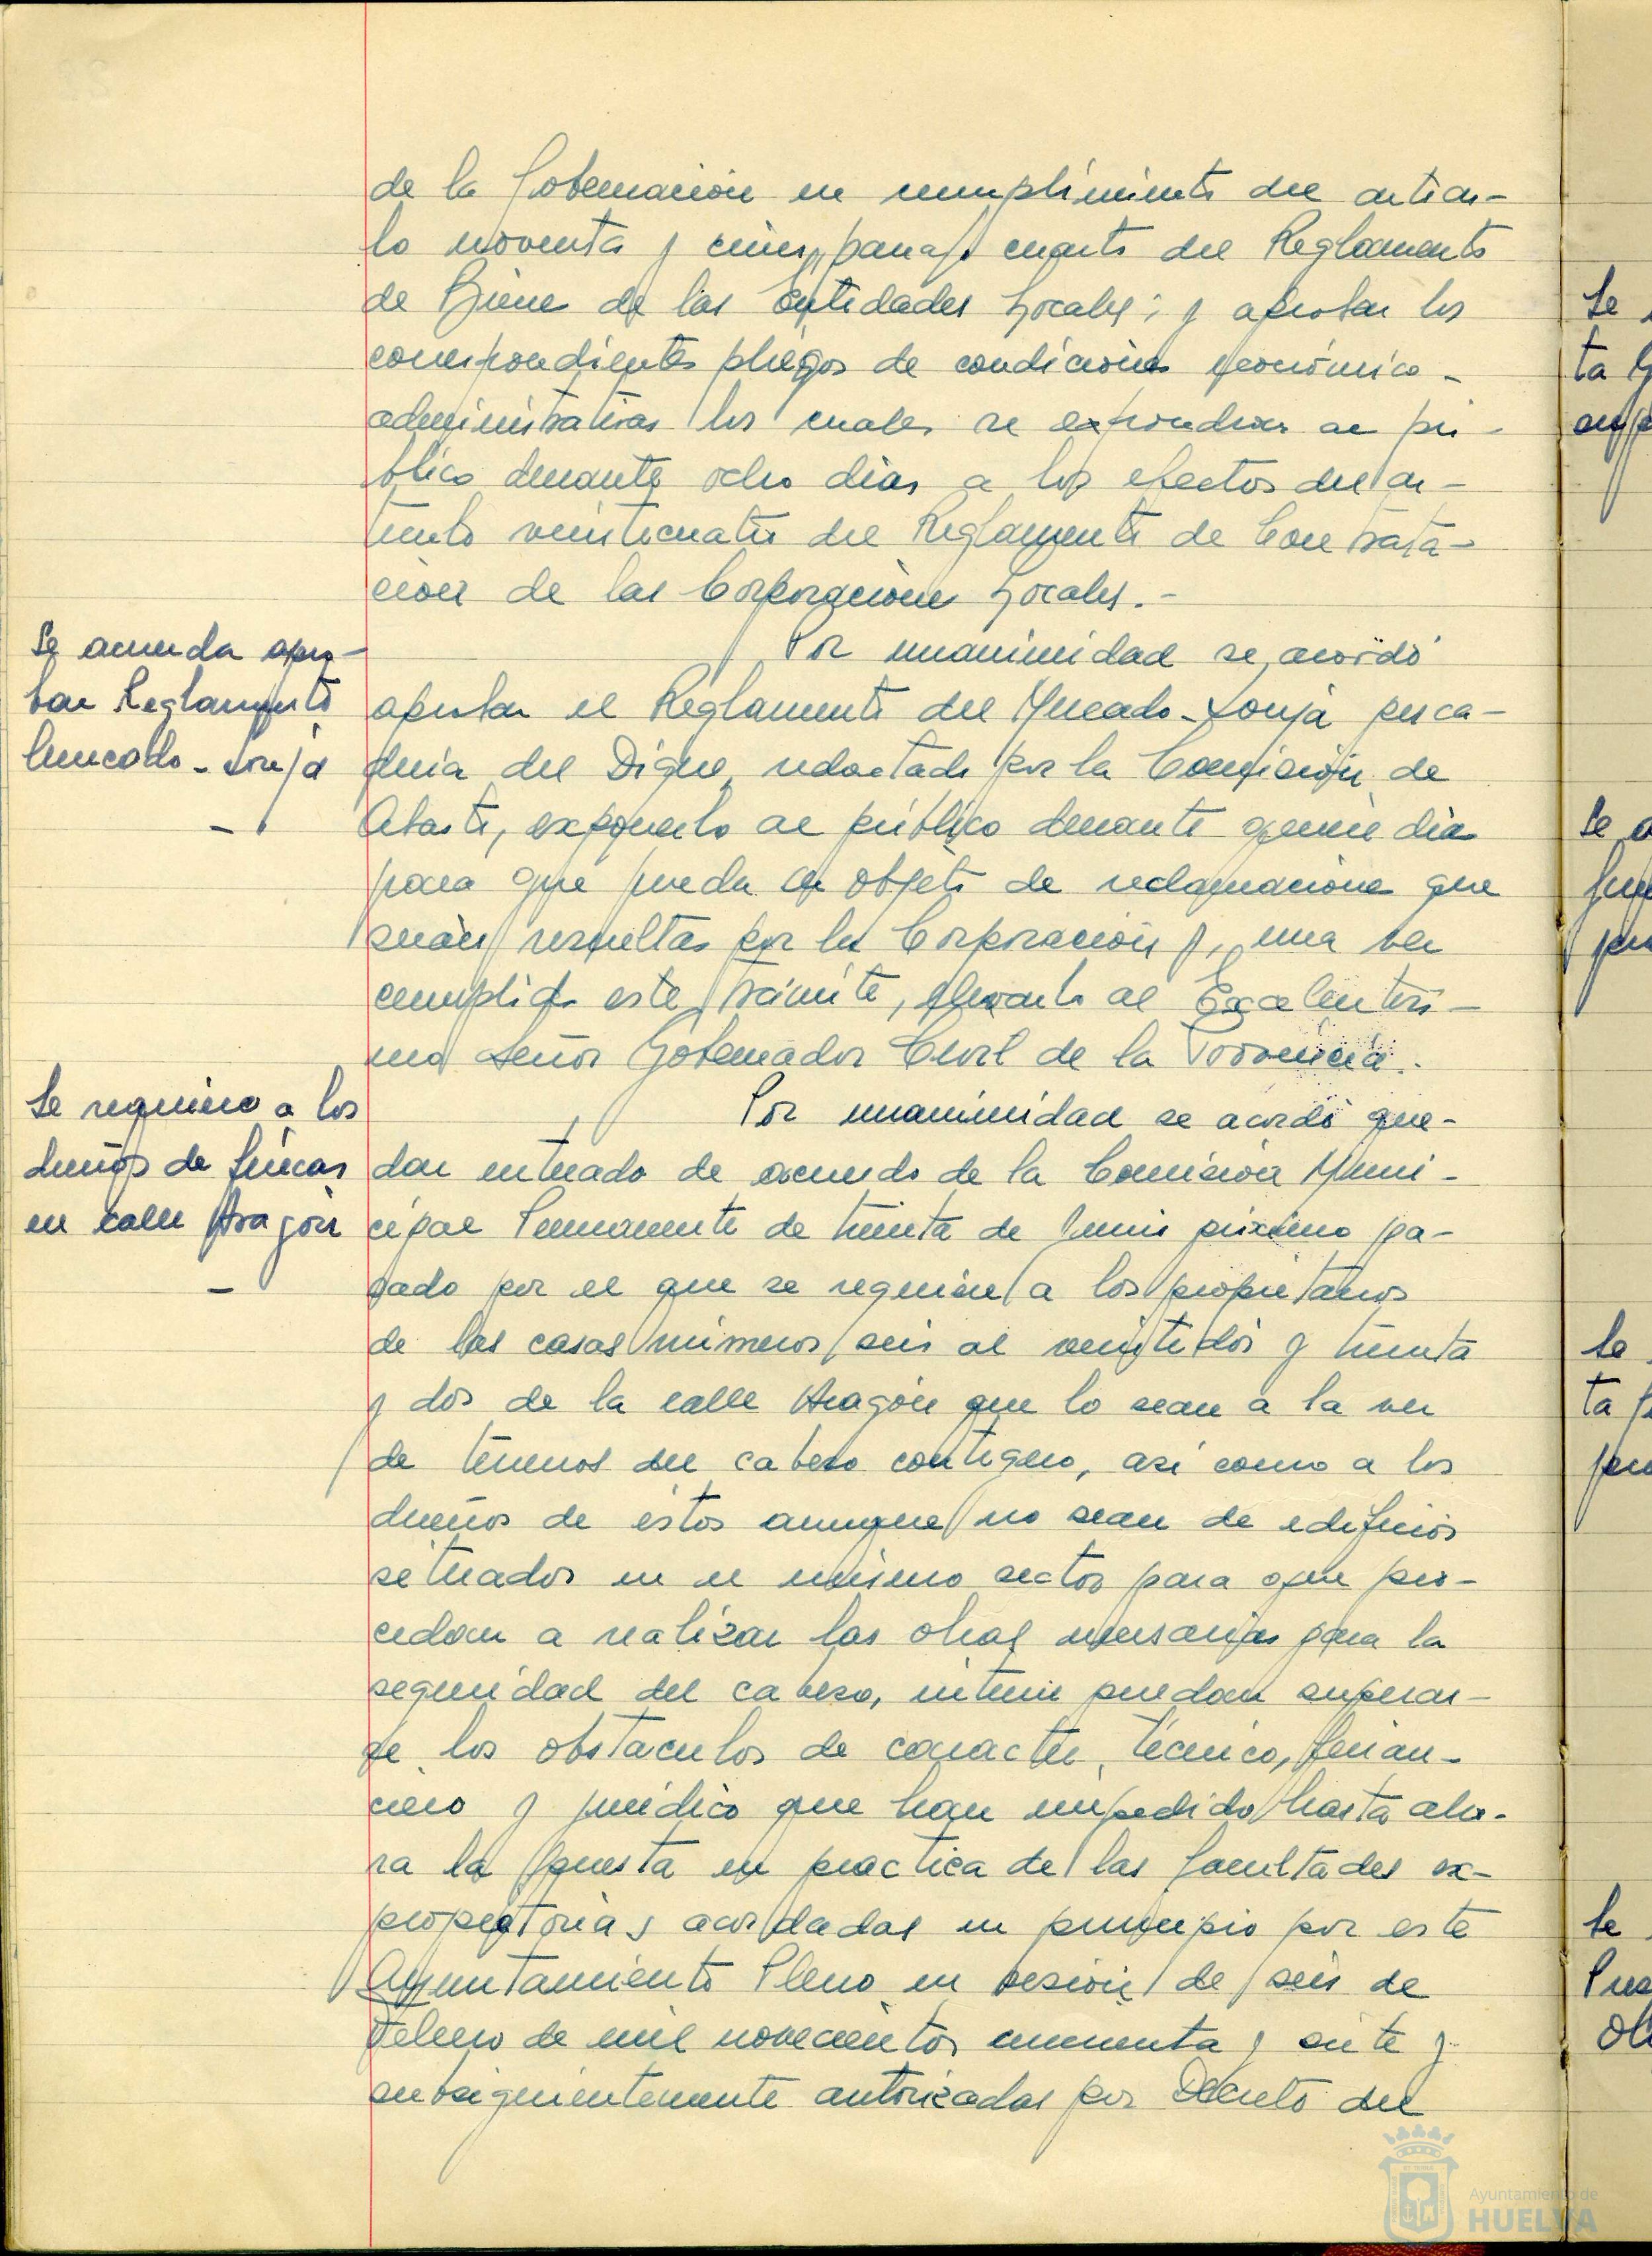 de la Gobernación en cumplimiento del artícu-
lo noventa y cinco, párrafo cuarto del Reglamento
de Bienes de las Entidades Locales; y aprobar los
correspondientes pliegos de condiciones económico-
administrativas los cuales se expondrán al pú-
blico durante ocho días a los efectos del ar-
tículo veinticuatro del Reglamento de Contrata-
ción de las Corporaciones Locales.-
Se acuerda apro-
bar Reglamento
Mercado-Lonja
-
Por unanimidad se acordó
aprobar el Reglamento del Mercado-Lonja pesca-
dería del Dique, redactado por la Comisión de
Abasto, exponerlo al público durante quince días
para que pueda ser objeto de reclamaciones que
serán resueltas por la Corporación y, una vez
cumplido este trámite, elevarlo al Excelentísi-
mo Señor Gobernador Civil de la Provincia.-
Se requiere a los
dueños de fincas
en calle Aragón
-
Por unanimidad se acordó que-
dar enterado de acuerdo de la Comisión Muni-
cipal Permanente de treinta de Junio próximo pa-
sado por el que se requiere a los propietarios
de las casas números seis al veintidós y treinta
y dos de la calle Aragón que lo sean a la vez
de terrenos del cabezo contiguo, así como a los
dueños de éstos aunque no sean de edificios
situados en el mismo sector para que pro-
cedan a realizar las obras necesarias para la
seguridad del cabezo, interin puedan superar-
se los obstáculos de caracter, técnico, finan-
ciero y jurídico que han impedido hasta aho-
ra la puesta en práctica de las facultades ex-
propiatorias acordadas en principio por este
Ayuntamiento Pleno en sesión de seis de
Febrero de mil novecientos cincuenta y siete y
subsiguientemente autorizadas por Decreto del
Se
ta
Se
Se
ta
Se
Ayuntamiento de
HUELVA